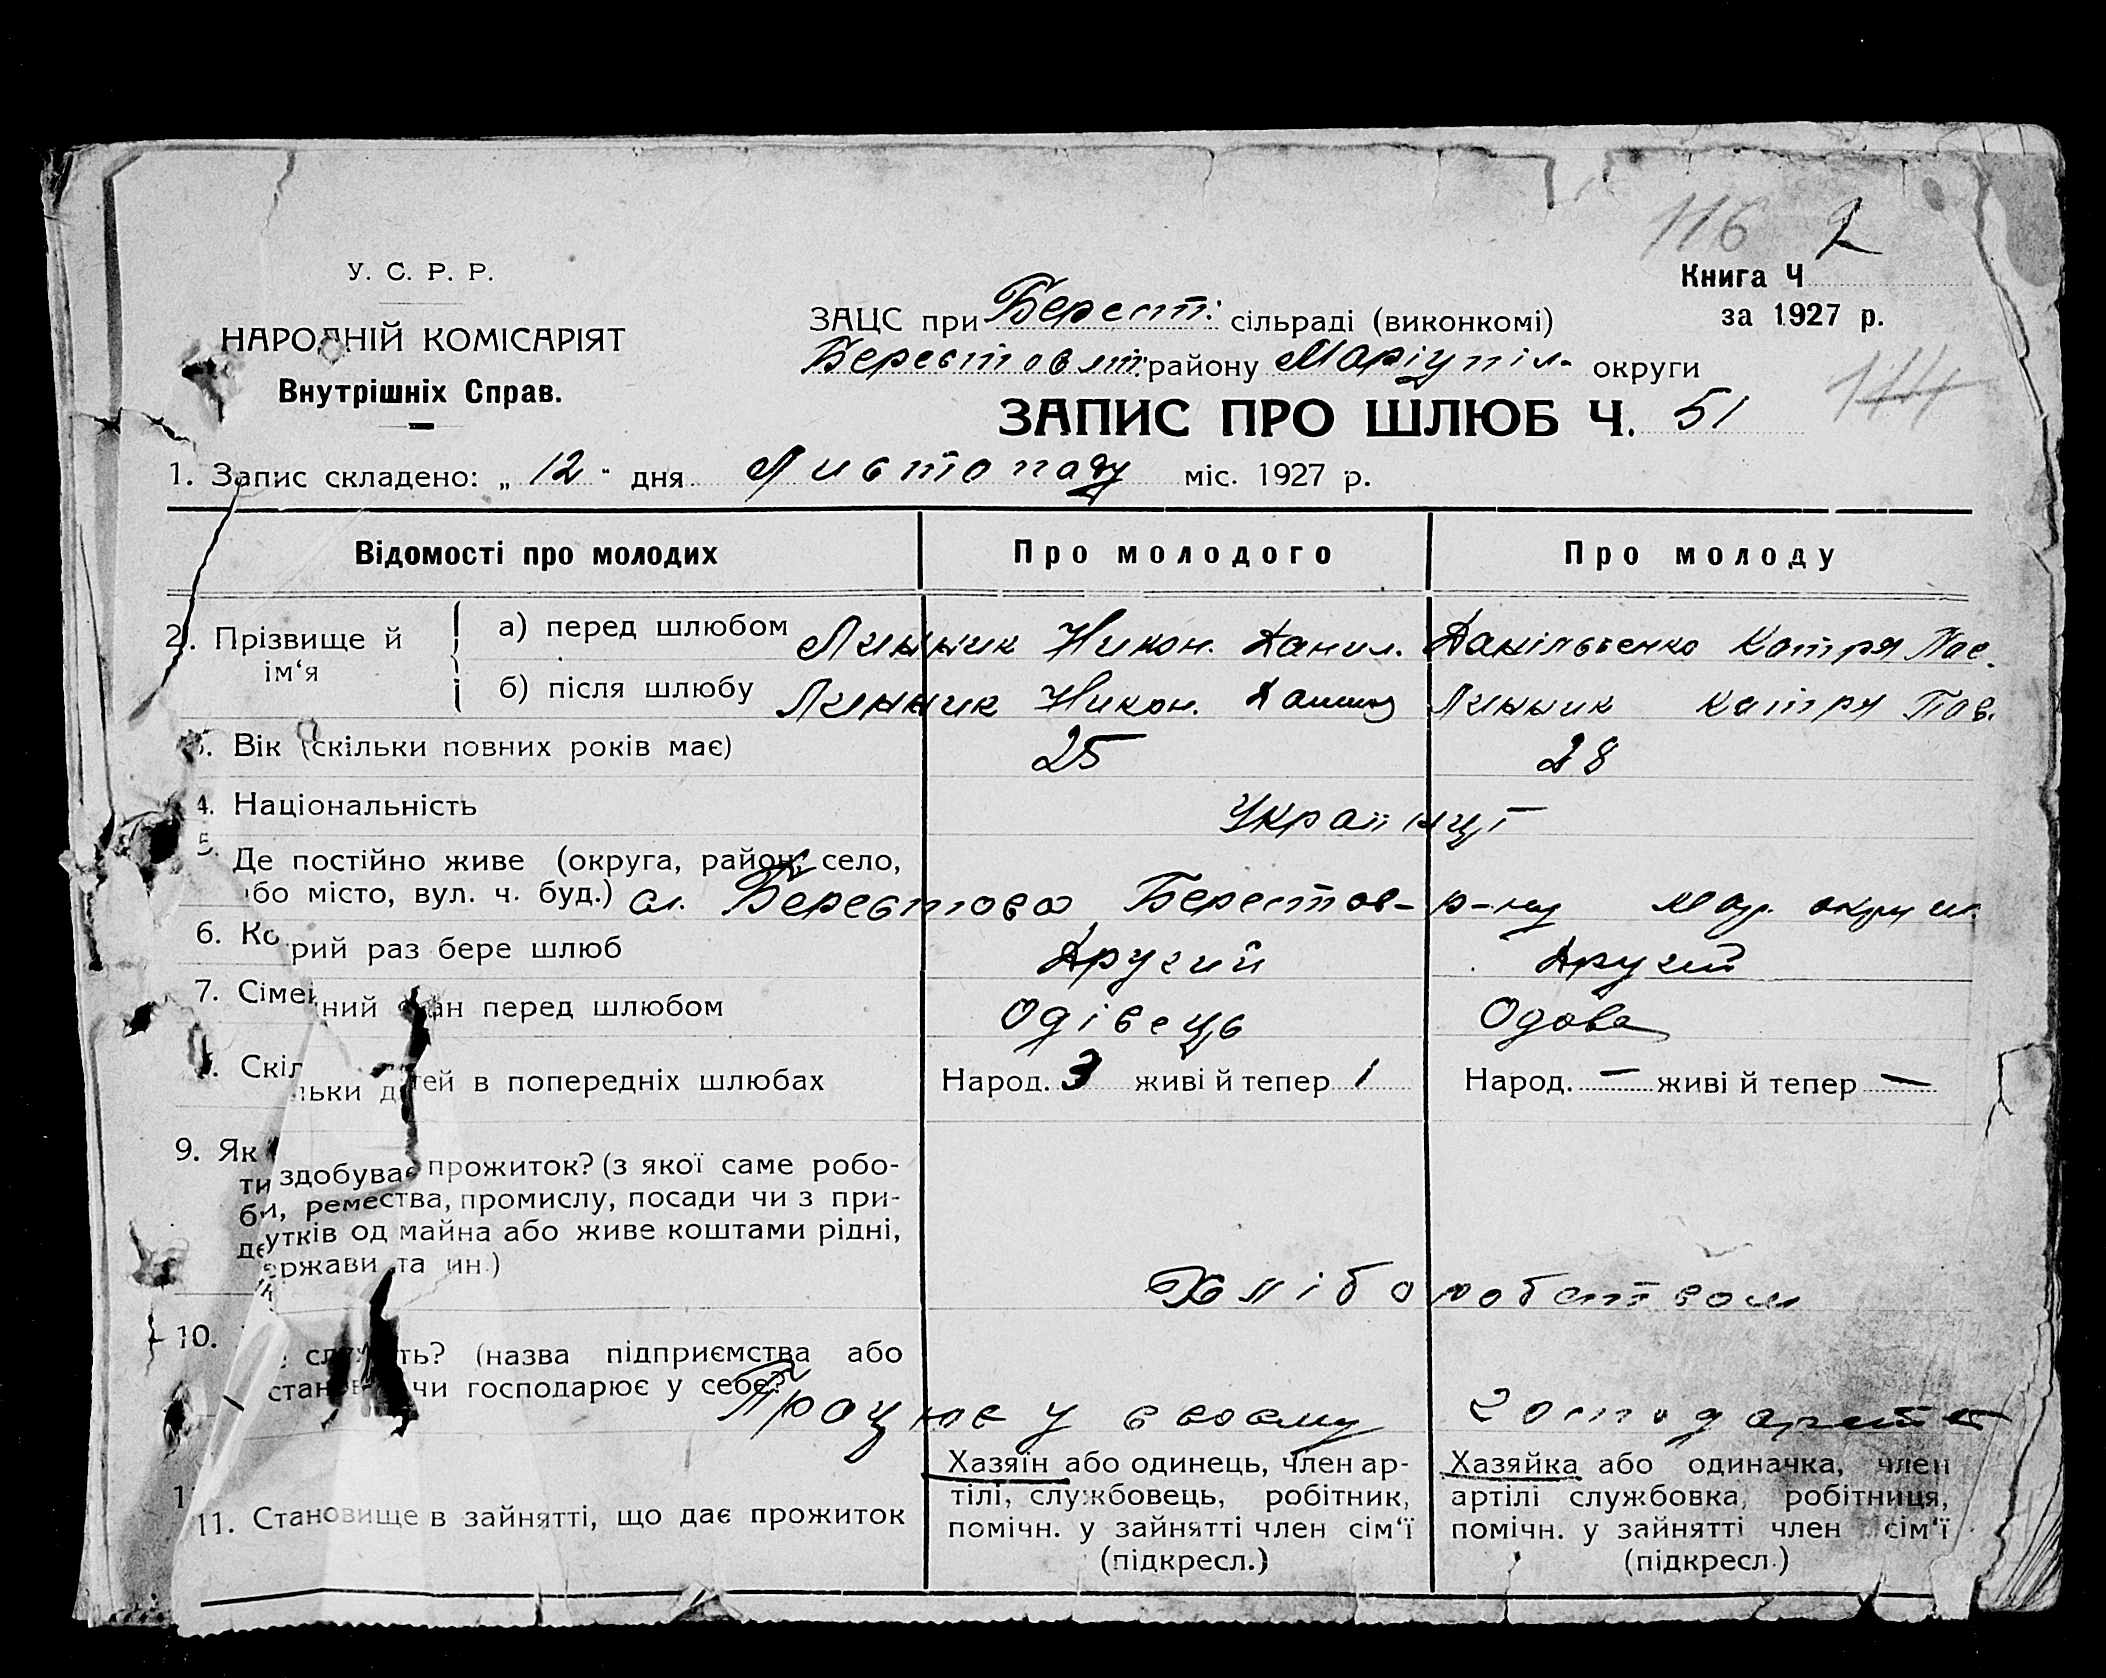 116 2
У. С. Р. Р.
Книга Ч
НАРОДНІЙ КОМІСАРІЯТ
ЗАЦС при Берест. сільраді (виконкомі)
за 1927 р.
Внутрішніх Справ.
Берестовст. району Маріупіл. округи
ЗАПИС ПРО ШЛЮБ Ч. 51
1. Запис складено: „ 12 " дня Листопаду міс. 1927 р.
Відомості про молодих Про молодого Про молоду
2. Прізвище й ім‘я
а) перед шлюбом Линник Никон. Данил. Катря Пав.
б) після шлюбу Линник Никон. Линник Катря Пав.
3. Вік (скільки повних років має) 25 28
4. Національність Українці
5. Де постійно живе (округа, район, село,
або місто, вул. ч. буд.) сл. Берестова Берестов- р-ну Мар. округи
6. Ко рий раз бере шлюб Другий Другий
7. Сімейний стан перед шлюбом Одівець Одова
Скільки дітей в попередніх шлюбах Народ. 3 живі й тепер 1 Народ. — живі й тепер —
9. Як здобуває прожиток? (з якої саме робо-
ти, ремества, промислу, посади чи з при-
бутків од майна або живе коштами рідні,
держави та ин.) Хліборобством
10. служить? (назва підприємства або
станов чи господарює у себе? Працює у своему господарстві
11. Становище в зайнятті, що дає прожиток
Хазяїн або одинець, член ар-
тілі, службовець, робітник,
помічн. у зайнятті член сім‘ї
(підкресл.)
Хазяйка або одиначка, член
артілі службовка, робітниця,
помічн. у зайнятті член сім‘ї
(підкресл.)